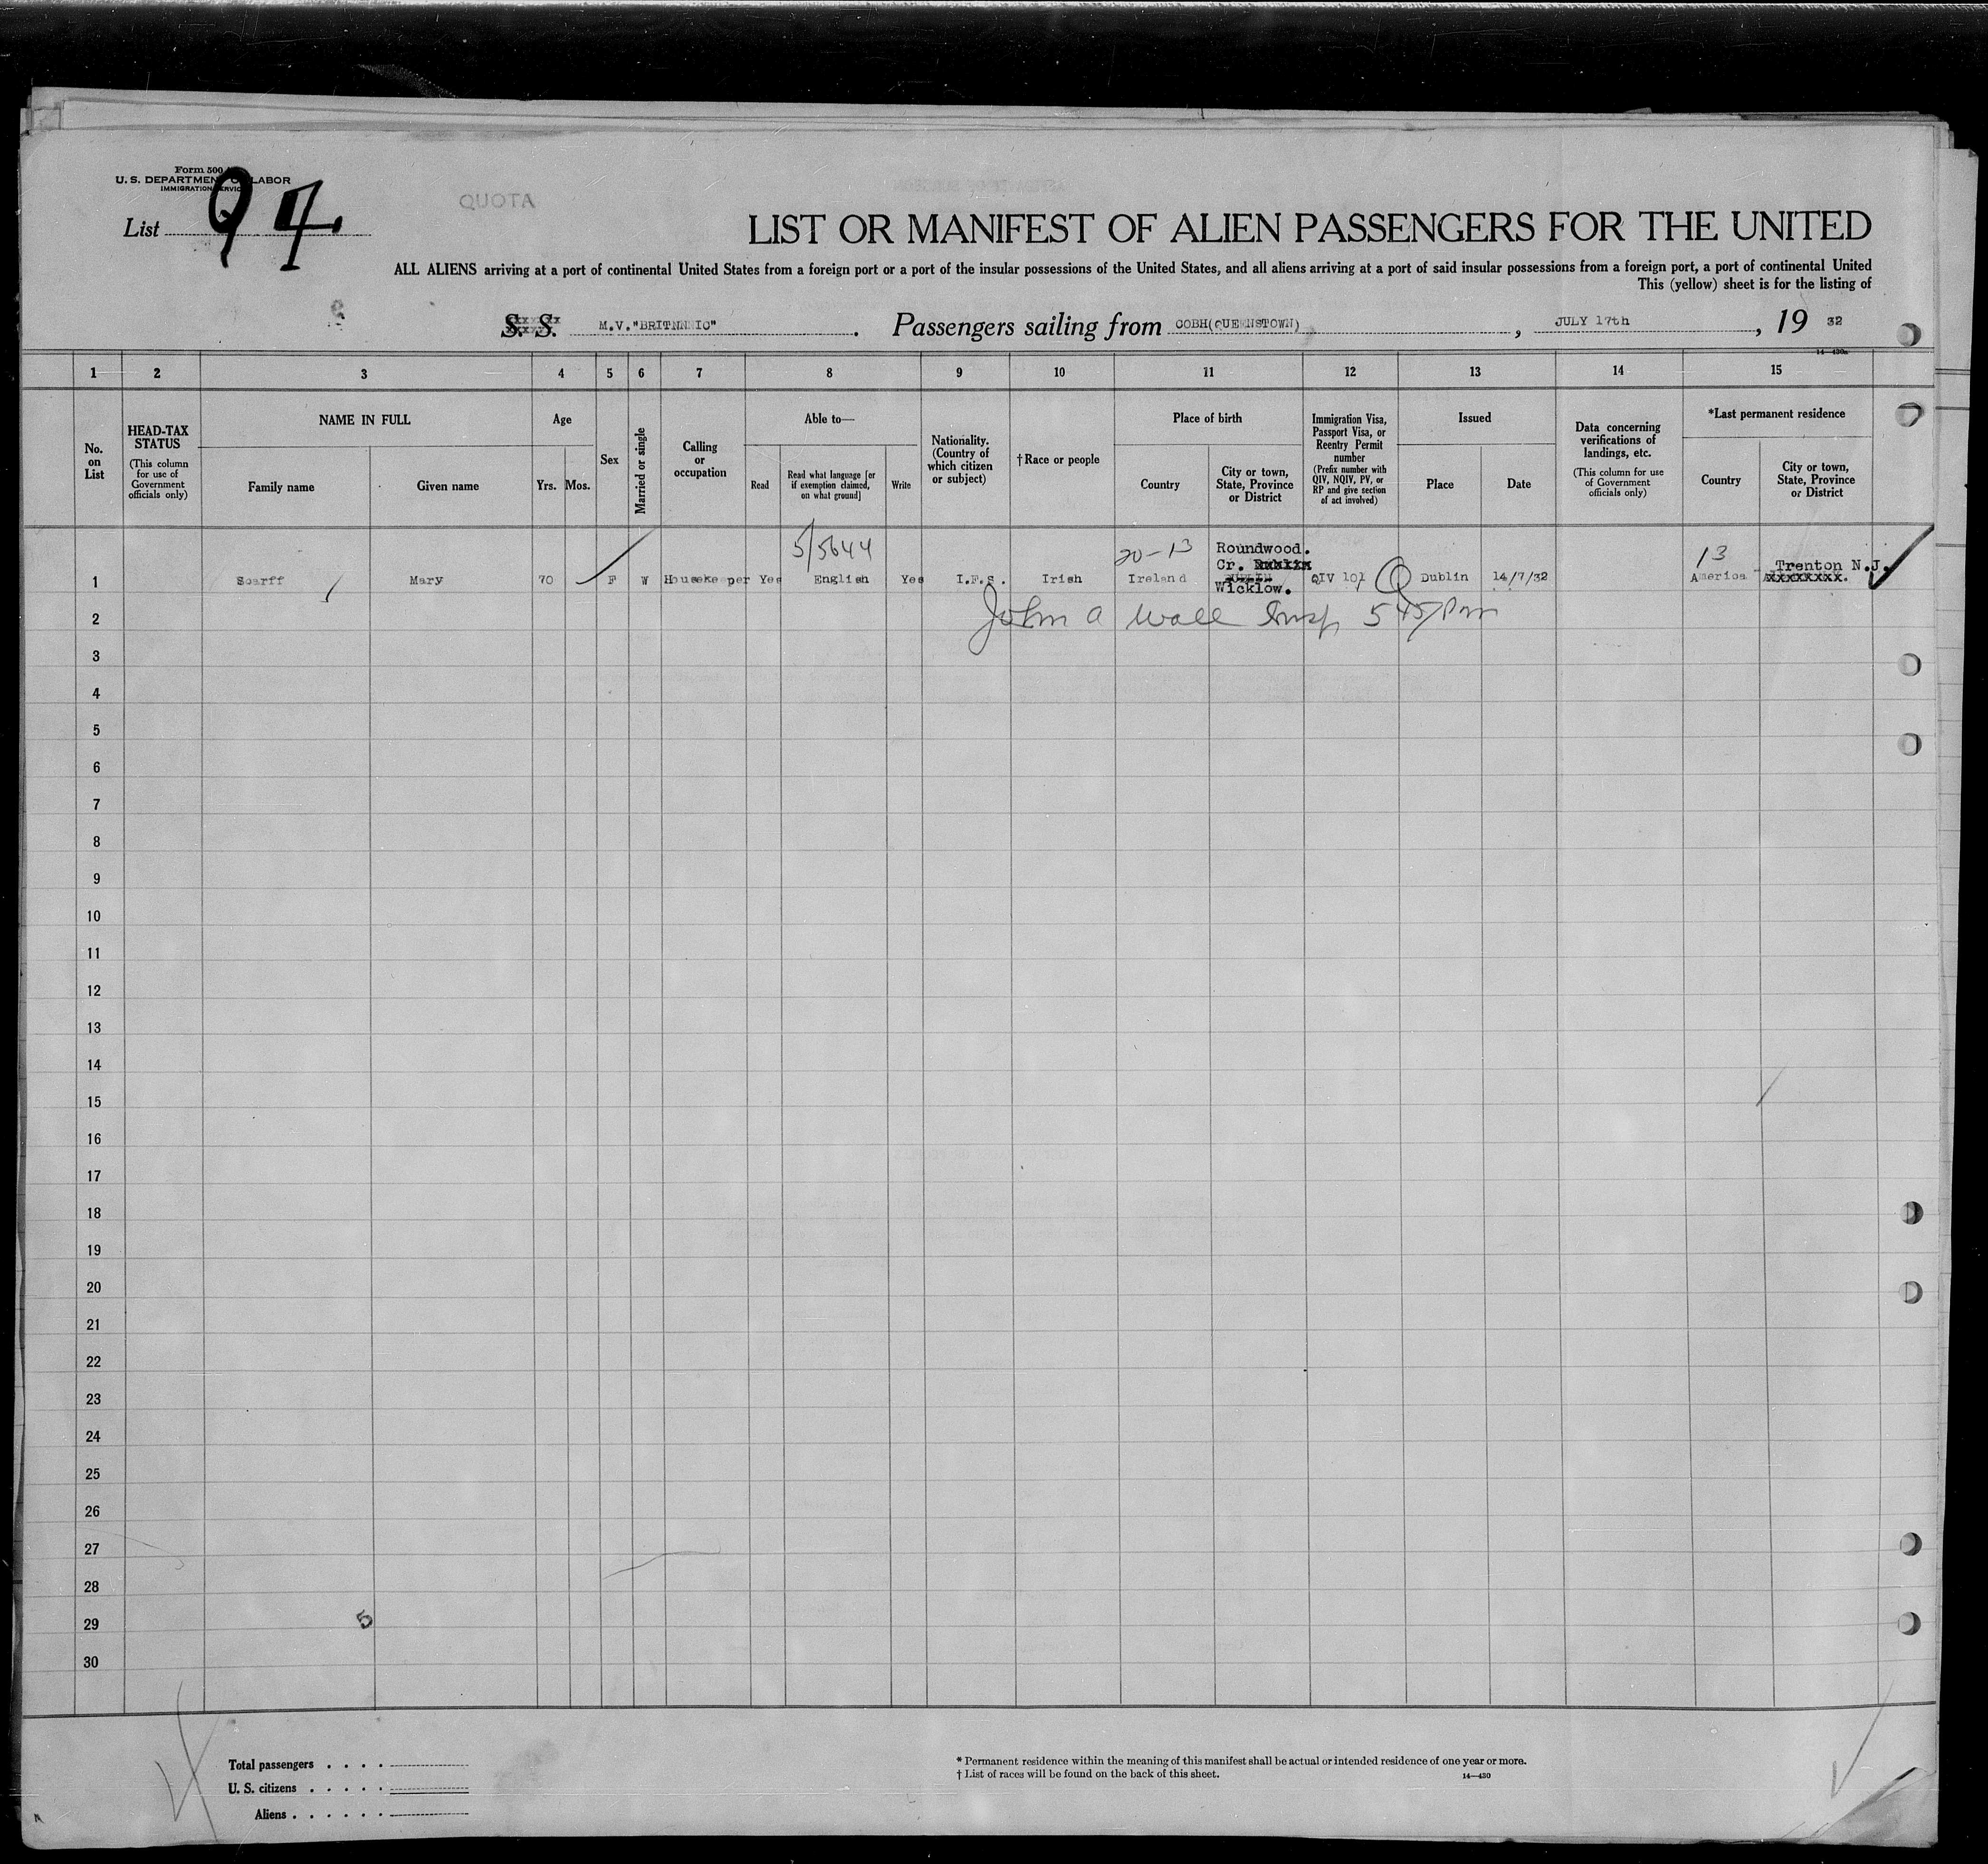 Form 500
U. S. DEPARTMENT OF LABOR
IMMIGRATION SERVICE
List 94
QUOTA
LIST OR MANIFEST OF ALIEN PASSENGERS FOR THE UNITED
ALL ALIENS arriving at a port of continental United States from a foreign port or a port of the insular possessions of the United States, and all aliens arriving at a port of said insular possessions from a foreign port, a port of continental United
This (yellow) sheet is for the listing of
S. S. M.V."BRITNNNIC". Passengers sailing from COBH(QUEENSTOWN), JULY 17th, 19 32
14—430a
1 2 3 4 5 6 7 8 9 10 11 12 13 14 15
No. on List
HEAD-TAX STATUS
(This column for use of Government officials only)
NAME IN FULL
Family name
Given name
Age
Yrs. Mos.
Sex
Married or single
Calling or occupation
Able to—
Read
Read what language [or if exemption claimed, on what ground]
Write
Nationality. (Country of which citizen or subject)
†Race or people
Place of birth
Country
City or town, State, Province or District
Immigration Visa, Passport Visa, or Reentry Permit number
(Prefix number with QIV, NQIV, PV, or RP and give section of act involved)
Issued
Place
Date
Data concerning verifications of landings, etc.
(This column for use of Government officials only)
*Last permanent residence
Country
City or town, State, Province or District
5/5644
20-13
13
Roundwood.
Co.
1 Scarff Mary 70 F W Housekeeper Yes English Yes I.F.S. Irish Ireland Wicklow. QIV 101 Q Dublin 14/7/32 America Trenton N.J.
John A Wall Insp 545/Pm
2
3
4
5
6
7
8
9
10
11
12
13
14
15
16
17
18
19
20
21
22
23
24
25
26
27
28
29
5
30
Total passengers . . . .
U. S. citizens . . . . .
Aliens . . . . . .
* Permanent residence within the meaning of this manifest shall be actual or intended residence of one year or more.
† List of races will be found on the back of this sheet.
14—430